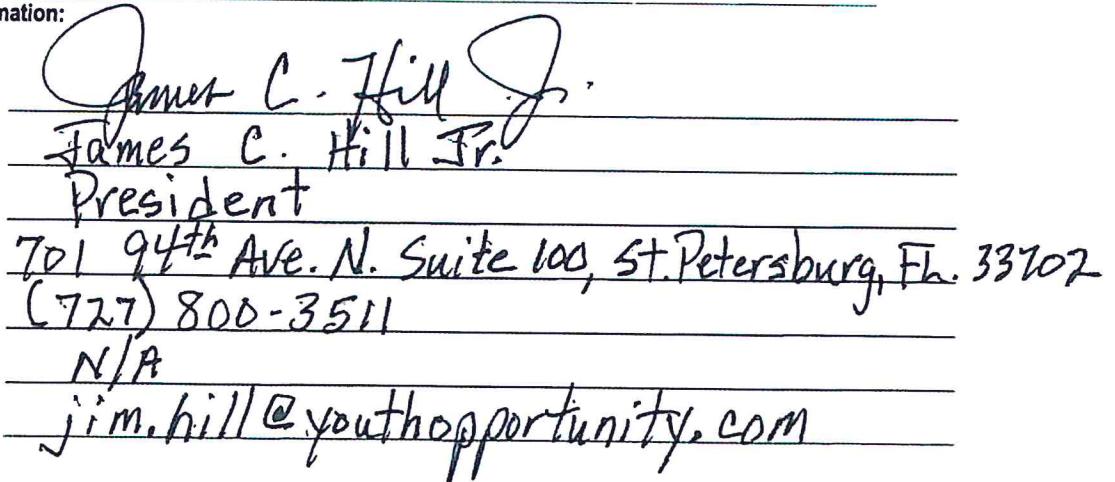 mation:
James C. Hill Jr.
James C. Hill Jr.
President
701 94th Ave. N. Suite 100, St. Petersburg, FL. 33702
(727) 800-3511
N/A
jim.hill@youthopportunity.com